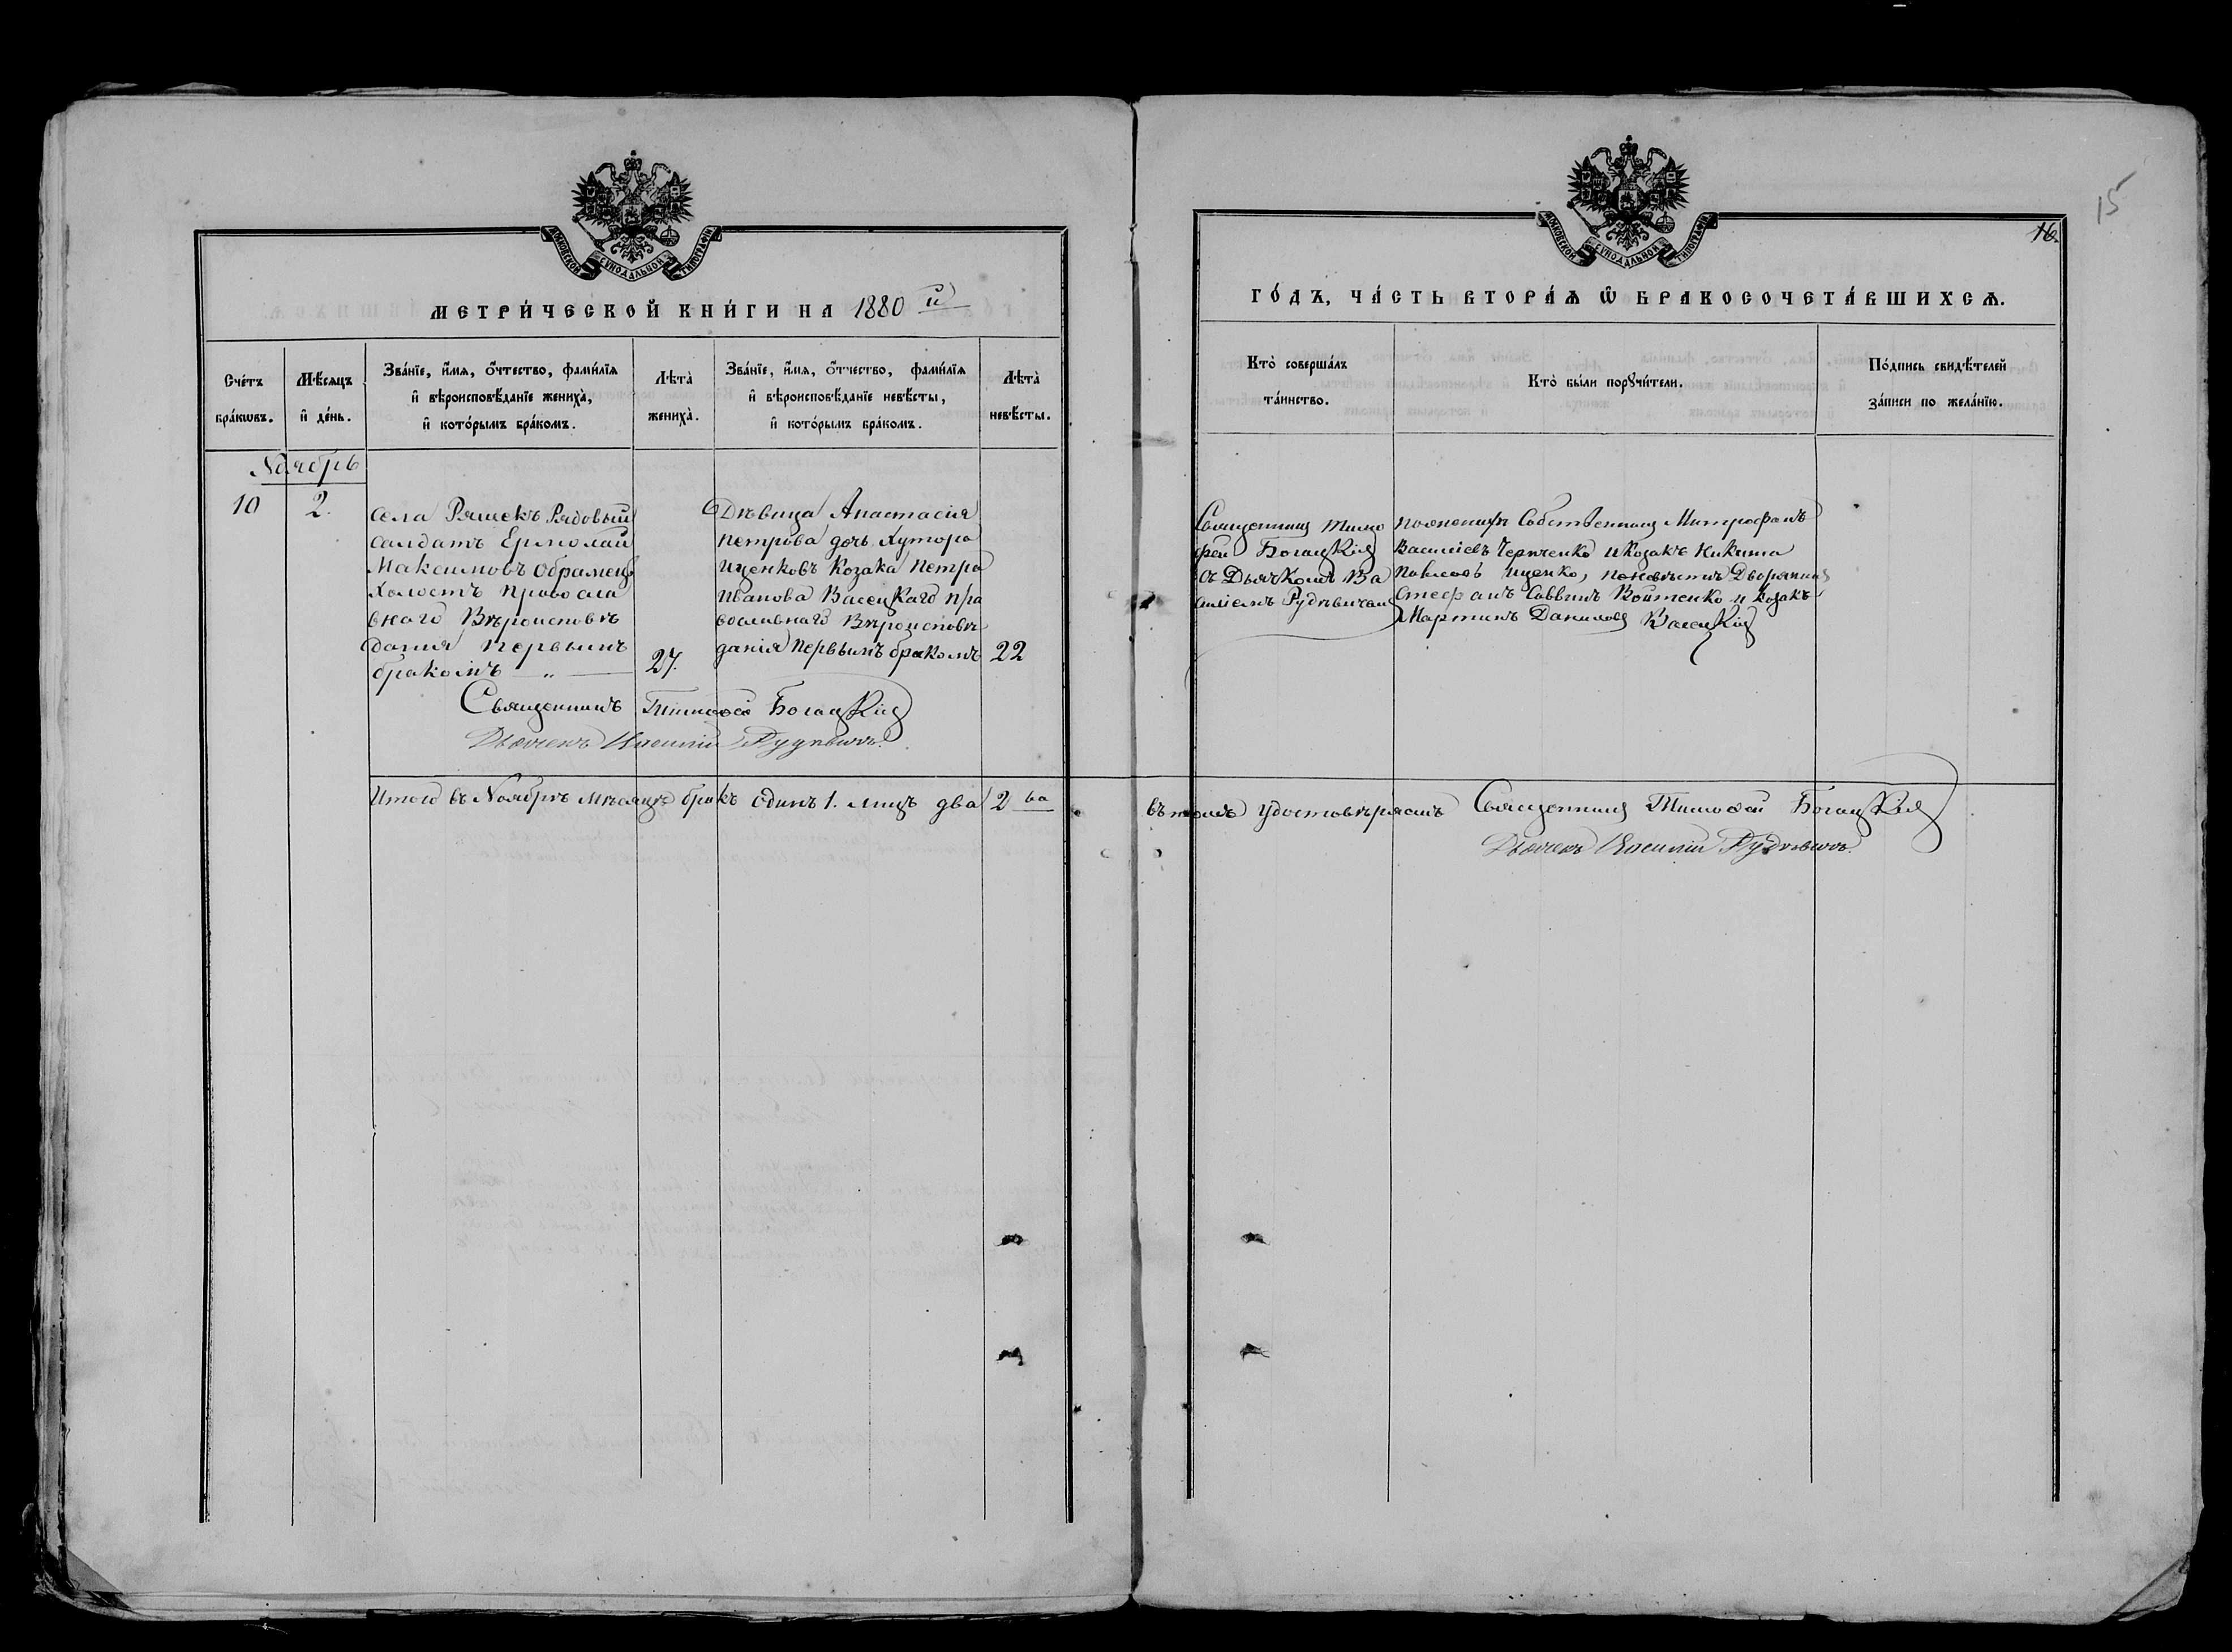 МОСКОВСКОЙ СѴНОДАЛЬНОЙ ТИПОГРАФІИ
МЕТРИ́ЧЕСКОЙ КНИ́ГИ НА 1880й
Сче́тъ бра́кѡвъ.
Мѣ́сяцъ и҆ де́нь.
Зва́нїе, и҆́мя, о҆́тчество, фами́лїя и҆ вѣроисповѣ́данїе жениха̀, и҆ кото́рымъ бра́комъ.
Лѣта̀ жениха̀.
Зва́нїе, и҆́мя, о҆́тчество, фами́лїя и҆ вѣроисповѣ́данїе невѣ́сты, и҆ кото́рымъ бра́комъ.
Лѣта̀ невѣ́сты.
Ноябрь
10
2.
Села Ряшекъ Рядовый
Салдатъ Ермолай
Максимовъ Образецъ
Холостъ Право сла
внаго Вѣроисповѣ
дания первымъ
бракомъ — „ —
27.
Дѣвица Анастасія
Петрова дочь Хутора
Ищенковъ Козака Петра
Иванова Васецкаго пра
вославнаго Вѣроисповѣ
данія первымъ бракомъ
22
Священникъ Тимоѳей Богацкій
Дьячекъ Василій Рудѣвичъ.
Итого въ Ноябрѣ мѣсяцѣ бракъ одинъ 1. лицъ два 2 ва
15
16.
МОСКОВСКОЙ СѴНОДАЛЬНОЙ ТИПОГРАФІИ
ГО́ДЪ, ЧА́СТЬ ВТОРА́Ѧ Ѡ҆ БРАКОСОЧЕТА́ВШИХСѦ.
Кто̀ соверша́лъ та́инство.
Кто̀ бы́ли порꙋчи́тели.
По́дпись свидѣ́телей за́писи по жела́нїю.
Священникъ Тимо
фей Богацкій
съ Дьячкомъ Ва
силіемъ Рудѣвичемъ
пожениху Собственникъ Митрофанъ
Василіевъ Черненко и Козакъ Никита
Павловъ Ищенко, поневѣстѣ Дворянинъ
Стефанъ Саввинъ Войтенко и Козакъ
Мартинъ Даниловъ Васецкій
въ томъ удостовѣряемъ Священникъ Тимоѳей Богацкій
Дьячекъ Василій Рудѣвичъ.